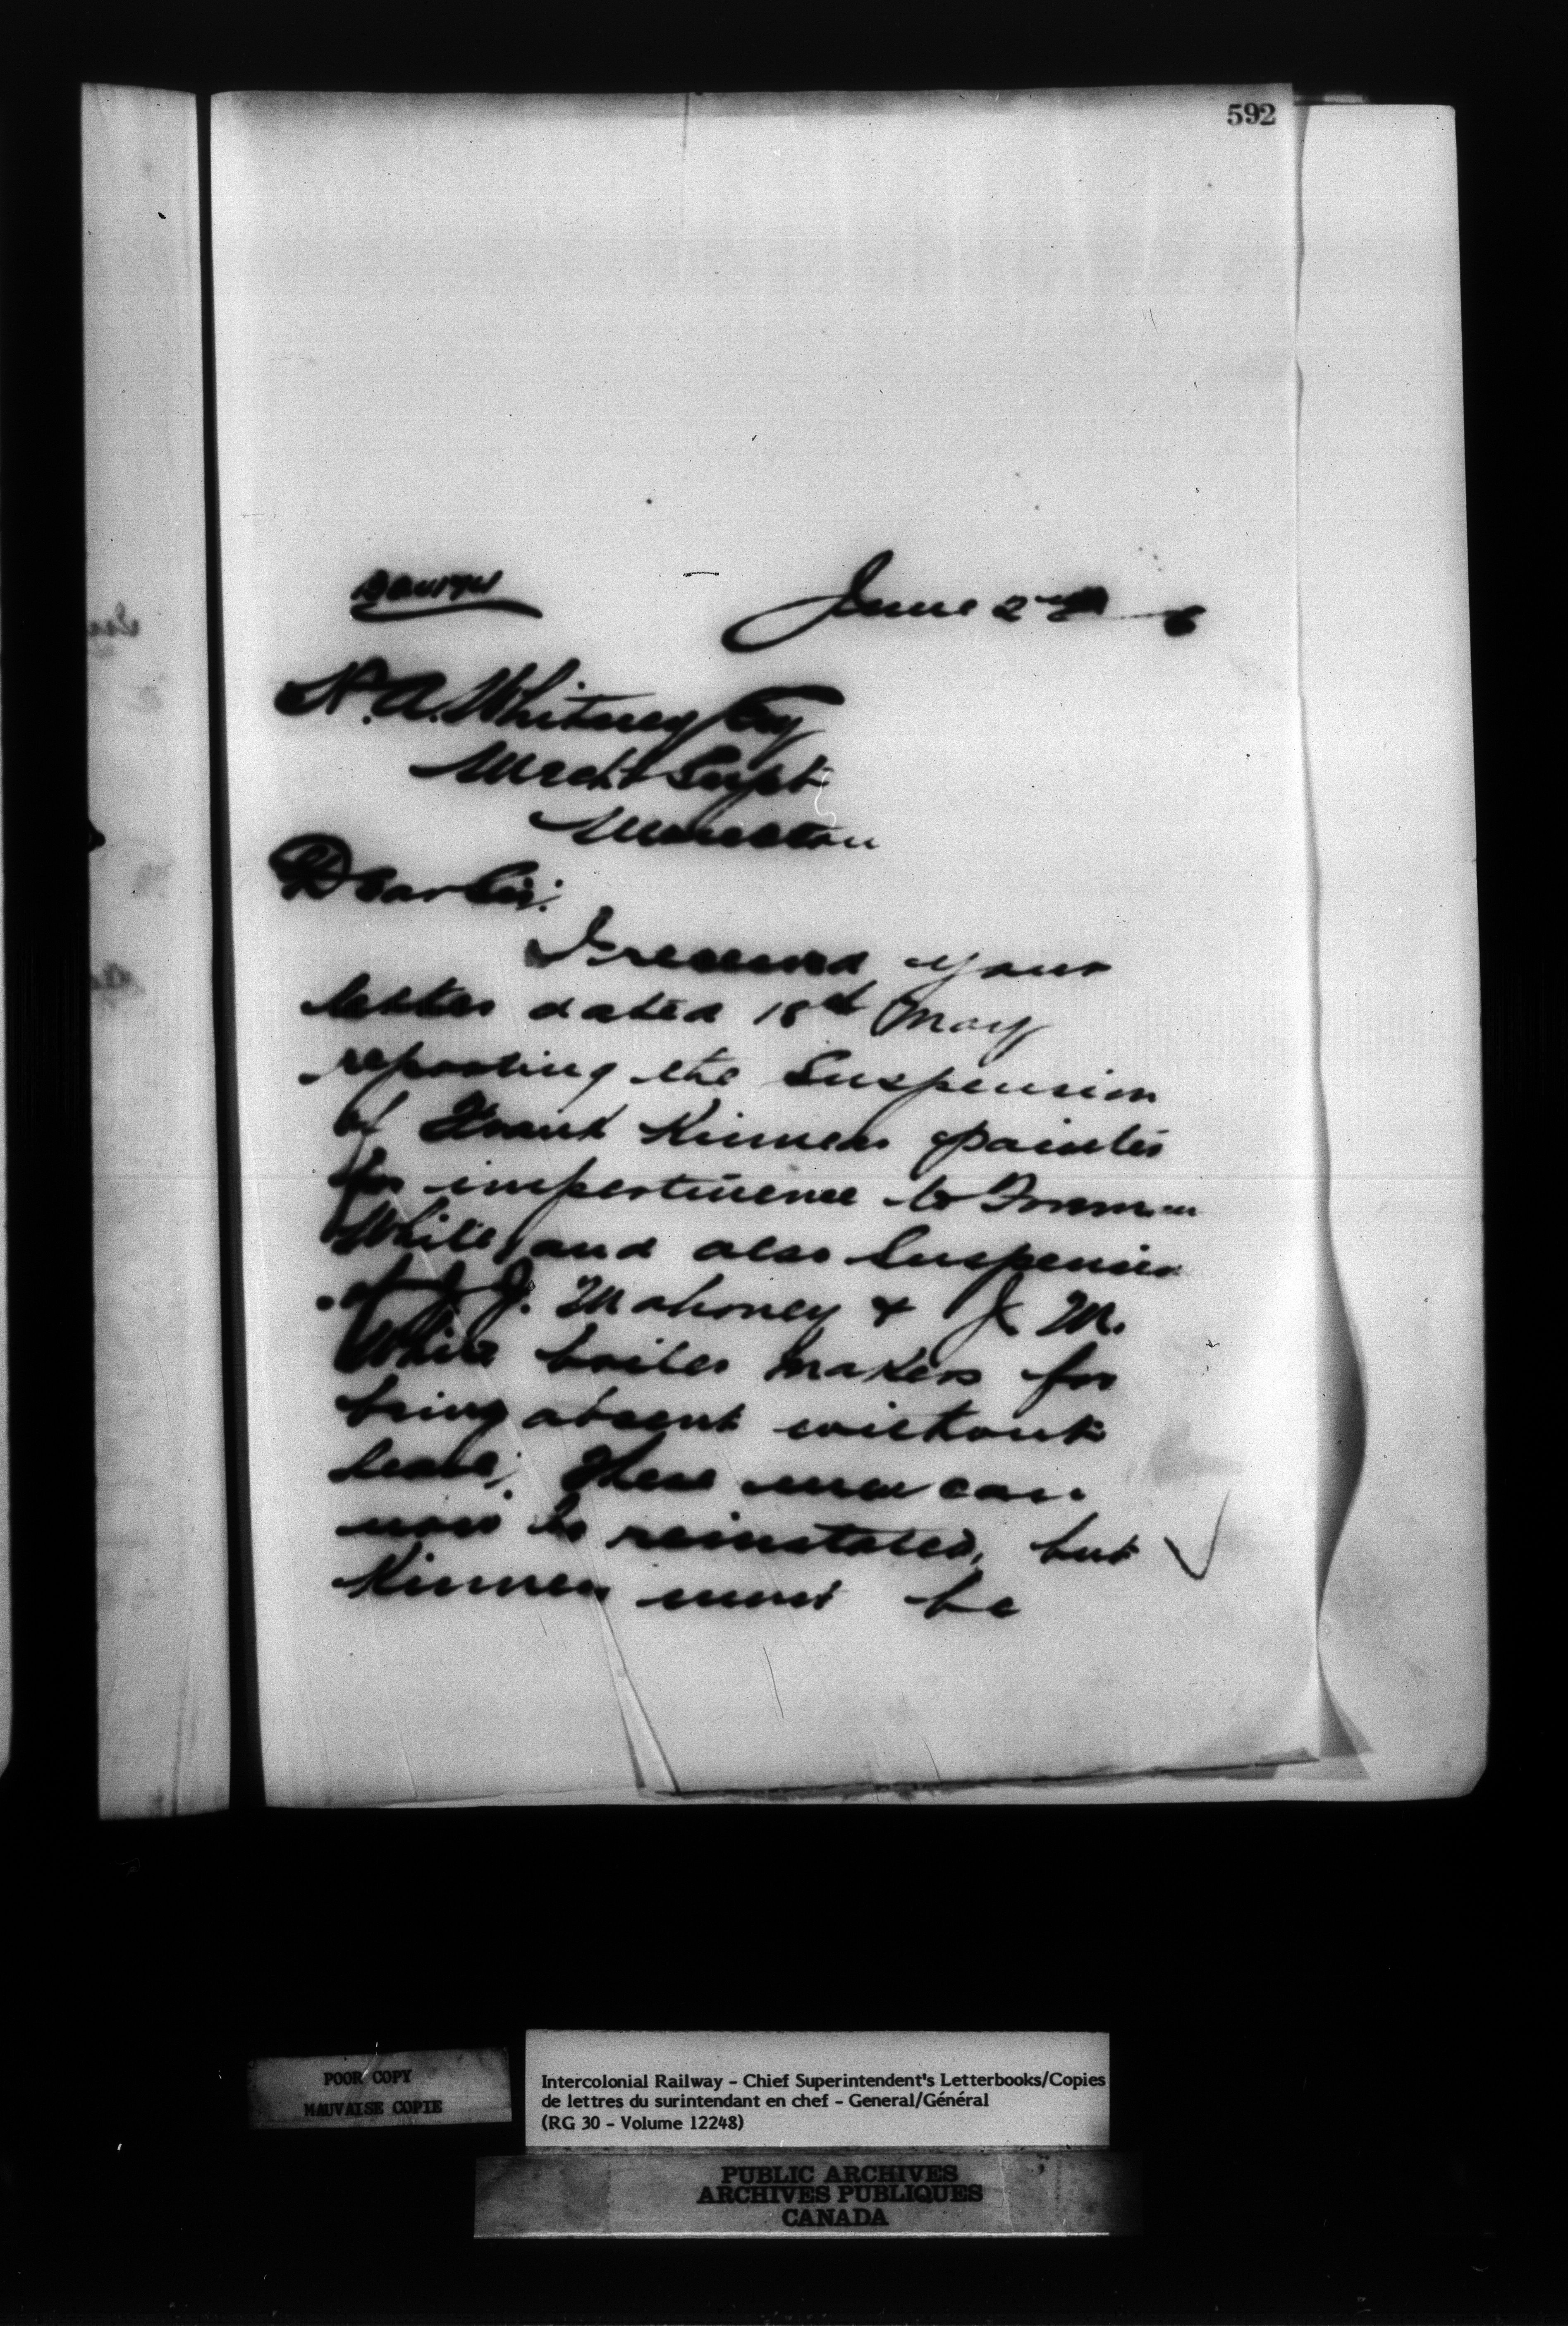 592
June 2nd
H. A. Whitney Esq
Mech Supt
Moncton
Dear Sir:
I received your
letter dated 18th May
reporting the Suspension
of Frank Kinnear painter
for impertinence to Foreman
White, and also Suspension
of J. J. Mahoney & J. M.
White boiler makers for
being absent without
leave; These men can
now be reinstated, but
Kinnear must be
POOR COPY
MAUVAISE COPIE
Intercolonial Railway - Chief Superintendent's Letterbooks/Copies
de lettres du surintendant en chef - General/Général
(RG 30 - Volume 12248)
PUBLIC ARCHIVES
ARCHIVES PUBLIQUES
CANADA